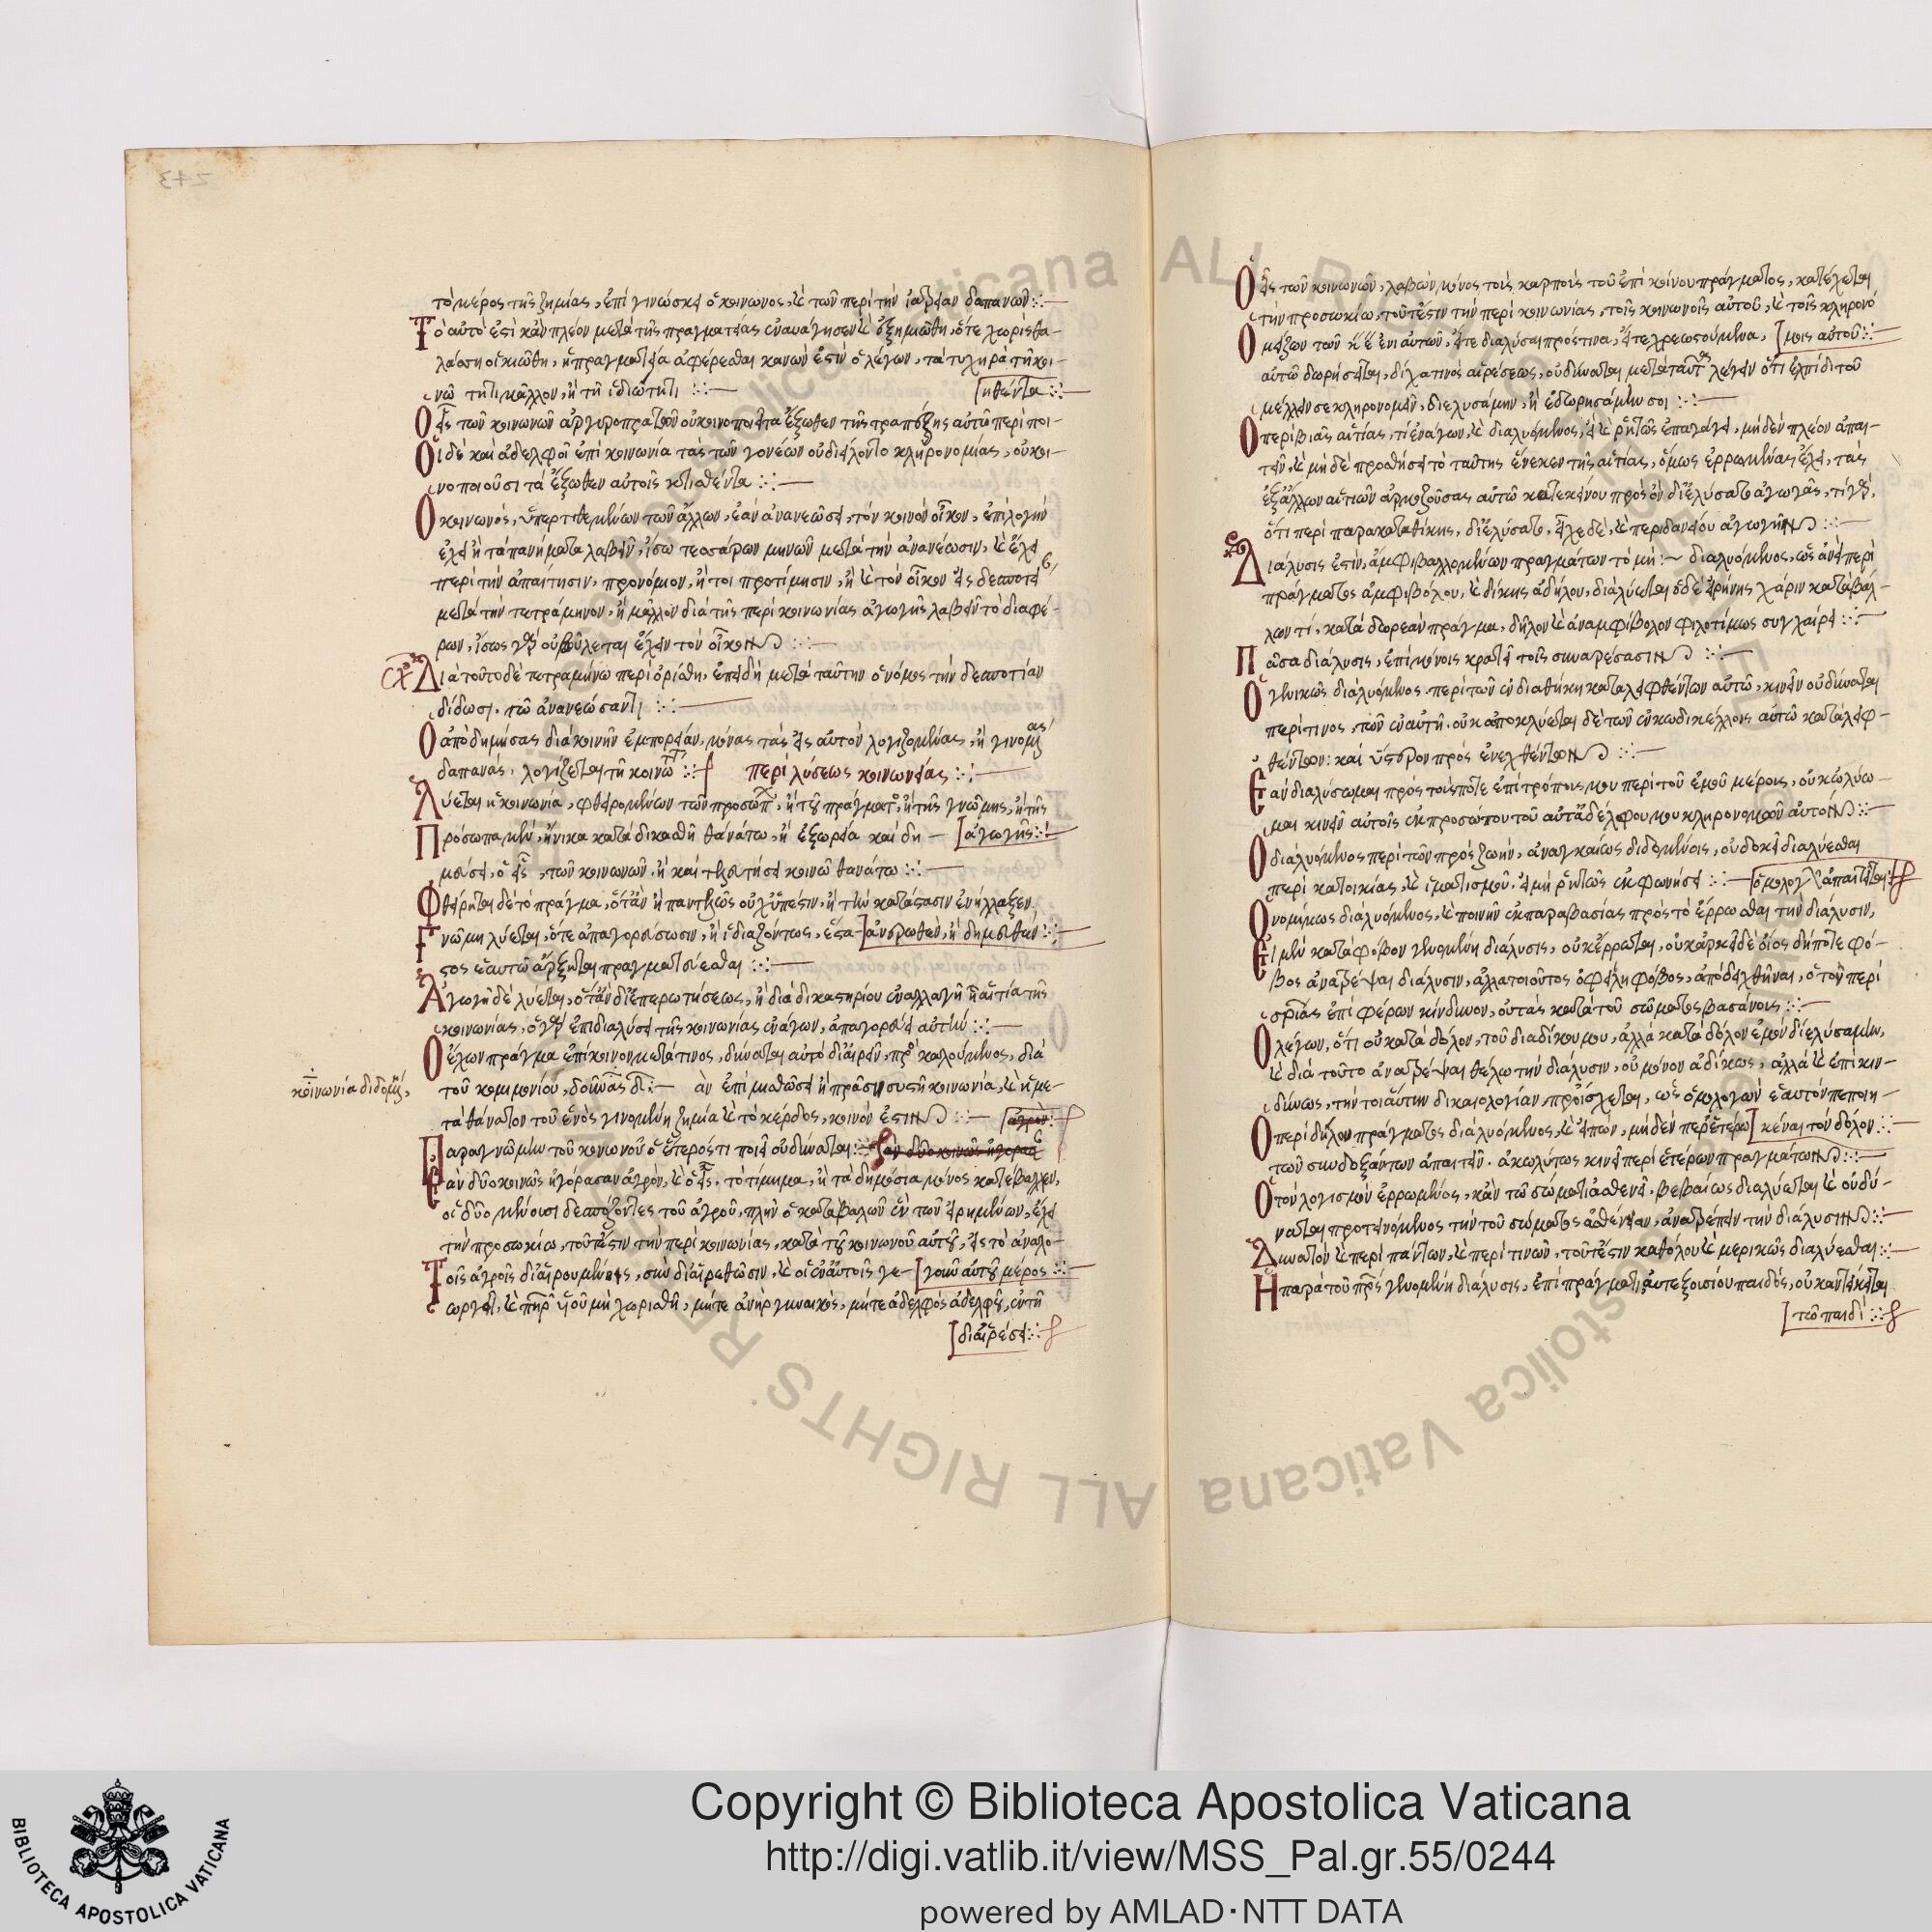 τὸ μέρος τῆς ζημίας, ἐπιγινώσκει ὁ κοινωνος, καὶ τῶν περὶ τὴν ἰατρείαν δαπανῶν
Τὸ αὐτὸ ἐστὶ κἂν πλέον μετὰ τῆς πραγματείας ἐναυάγησεν καὶ ἐζημιώθη, ὅτε χωρὶς θα-
νῶ τῆτι μᾶλλον, ἢ τῆ ἰδιώτητι
ηθέντα
Οἱ δὲ καὶ ἀδελφοὶ ἐπὶ κοινωνία τὰς τῶν γονέων οὐ διείλοντο κληρονομίας, οὐ κοι-
νοποιοῦσι τὰ ἔξωθεν αὐτοῖς κτιθέντα
Ὁ κοινωνός, ὑπερτιθεμένων τῶν ἄλλων, ἐὰν ἀνανεώσει, τὸν κοινὸν οἶκον, ἐπιλογὴν
ἔχει ἢ τὰ πανήματα λαβεῖν, ἴσω τεσσάρων μηνῶν μετὰ τὴν ἀνανέωσιν, καὶ ἔχει
περὶ τὴν ἀπαίτησιν, προνόμιον, ἤτοι προτίμησιν, ἢ καὶ τὸν οἶκον εἰς δεσποτεί
μετὰ τὴν τετράμηνον, ἢ μᾶλλον διὰ τῆς περὶ κοινωνίας ἀγωγῆς λαβεῖν τὸ διαφέ-
ρων, ἴσως γὰρ οὐ βούλεται ἔχειν τὸν οἶκον
Διὰ τοῦτο δὲ τετραμήνω περιορίσθη, ἐπειδὴ μετὰ ταύτην ὁ νόμος τὴν δεσποτίαν
δίδωσι τῶ ἀνανεώσαντι
Ὁ ἀποδημήσας διὰ κοινὴν ἐμπορείαν, μόνας τὰς εἰς αὐτὸν λογιζομένας, ἢ γινομένας
δαπανάς, λογίζεται τῆ κοινω
περὶ λύσεως κοινωνίας
Λύεται ἡ κοινωνία, φθειρομένων τῶν προσώπων, ἢ τοῦ πράγματος, ἢ τῆς γνώμης, ἢ τῆς
ἀγωγῆς
Πρόσωπα μὲν, ἡνίκα καταδικασθῆ θανάτω, ἢ ἐξωρία καὶ δη-
μεύσει, ὁ εἷς, τῶν κοινωνῶν, ἢ καὶ τελευτήσει κοινῶ θανάτω
Φθείρεται δὲ τὸ πράγμα, ὅταν ἢ παντελῶς οὐχ ὕπεστιν, ἢ τὴν κατάστασιν ἐνήλλαξεν
Γνώμη λύεται, ὅτε ἀπαγορεύσωσιν, ἢ ἰδιαζόντως, ἕκα-
στος ἑαυτῶ ἄρξηται πραγματεύεσθαι
Ἀγωγὴ δὲ λύεται, ὅταν δι' ἐπερωτήσεως, ἢ διὰ δικαστηρίου ἐναλλαγῆ ἡ αἰτία τῆς
κοινωνίας, ὁ γὰρ ἐπὶ διαλύσει τῆς κοινωνίας ἐνάγων, ἀπαγορεύει αὐτὴν
Ὁ ἔχων πρᾶγμα ἐπίκοινον μετά τινος, δύναται αὐτὸ διαιρεῖν, προκαλούμενος, διὰ
τὰ θάνατον τοῦ ἑνὸς γινομένη ζημία καὶ τὸ κέρδος, κοινόν ἐστιν
ἀγρόν
Παρὰ γνώμην τοῦ κοινωνοῦ ὁ ἕτερός τι ποιεῖ οὐ δύναται
Ἐὰν δύο κοινῶς ἠγόρασαν ἀγρὸν, καὶ ὁ εἷς, τὸ τίμημα, ἢ τὰ δημόσια μόνος κατέβαλλεν,
οἱ δύο μένουσι δεσπόζοντες τοῦ ἀγροῦ, πλὴν ὁ καταβαλὼν ἓν τῶν εἰρημένων, ἔχει
τὴν προσωκίω, τουτέστιν τὴν περὶ κοινωνίας, κατὰ τοῦ κοινωνοῦ αὐτοῦ, εἰς τὸ ἀναλο-
γοῦν αὐτοῦ μέρος
Τοῖς ἀγροῖς διαιρουμένοις, συνδιαιρεθῶσιν, καὶ οἱ ἐν αὐτοῖς γε-
ωργοί, μὴ χωρισθῆ, μήτε ἀνὴρ γυναικὸς, μήτε ἀδελφὸς ἀδελφῆς, ἐν τῆ
διαιρέσει
Ὁ εἷς τῶν κοινωνῶν, λαβὼν μόνος τοὺς καρποὺς τοῦ ἐπικοίνου πράγματος, κατέχεται
τὴν προσωκίω, τουτέστιν τὴν περὶ κοινωνίας, τοῖς κοινωνοῖς αὐτοῦ, καὶ τοῖς κληρονό
μοις αὐτοῦ
αὐτῶ δωρήσεται, δίχα τινὸς αἱρέσεως, οὐ δύναται μετὰ ταῦτα λέγειν ὅτι ἐλπίδι τοῦ
μέλλειν σε κληρονομεῖν, διελυσάμην, ἢ ἐδωρησάμην σοι
Ὁ περὶ βιᾶς αἰτίας, τι ἐνάγων, καὶ διαλυόμενος, εἰ καὶ ῥητῶς ἐπαγάγει, μηδὲν πλέον ἀπαι-
τεῖν, καὶ μὴ δὲ προσθήσει τὸ ταύτης ἕνεκεν τῆς αἰτίας, ὅμως ἐρρωμένας ἔχει, τὰς
ἐξ ἄλλων αἰτιῶν ἁρμοζούσας αὐτῶ κατ' ἐκείνου πρὸς ὃν διελύσατο ἀγωγὰς, τί γάρ,
ὅτι περὶ παρακαταθήκης, διελύσατο, εἶχε δὲ, καὶ περὶ δανείου ἀγωγήν
Διάλυσις ἐστὶν, ἀμφιβαλλομένων πραγμάτων τομή διαλυόμενος, ὡς ἀνεὶ περὶ
πράγματος ἀμφιβόλου, καὶ δίκης ἀδήλου, διαλύεται ὁ δὲ εἰρήνης χάριν καταβάλ-
λων τί, κατὰ δωρεὰν πράγμα, δῆλον καὶ ἀναμφίβολον φιλοτίμως συγχαίρει
Πᾶσα διάλυσις, ἐπὶ μόνοις κρατεῖ τοῖς συναρέσασιν
Ὁ γενικῶς διαλυόμενος περὶ τῶν ἐν διαθήκη καταλειφθέντων αὐτῶ, κινεῖν οὐ δύναται
περὶ τινος, τῶν ἐν αὐτῆ, οὐκ ἀποκλύεται δὲ τῶν ἐν κωδικέλλοις αὐτῶ καταλειφ-
θέντων καὶ ὕστερον πρὸς ἐνεχθέντων
Ἐὰν διαλύσωμαι πρὸς τούς ποτε ἐπιτρόπους μου περὶ τοῦ ἐμοῦ μέρους, οὐ κωλύω
μαι κινεῖν αὐτοῖς ἐκ προσώπου τοῦ αὐταδέλφου μου κληρονομῶν αὐτόν
Ὁ διαλυόμενος περὶ τῶν πρὸς ζωὴν, ἀναγκαίως διδομένοις, οὐ δοκεῖ διαλύεσθαι
περὶ κατοικίας, καὶ ἱματισμοῦ, εἰ μὴ ῥητῶς ἐκφωνήσει
Ὁ νομίμως διαλυόμενος, καὶ ποινὴν ἐκ παραβασίας πρὸς τὸ ἔρρωσθαι τὴν διάλυσιν,
Εἰ μὲν κατὰ φόβον γενομένη διάλυσις, οὐκ ἔρρωται, οὐκ ἀρκεῖ δὲ οἷος δήποτε φό-
βος ἀνατρέψαι διάλυσιν, ἀλλὰ τοιοῦτος ὀφείλει φόβος, ἀποδειχθῆναι, ὁ τὸν περὶ
σωτηρίας ἐπιφέρων κίνδυνον, οὐ τὰς κατὰ τοῦ σώματος βασάνους
Ὁ λέγων, ὅτι οὐ κατὰ δόλον, τοῦ διαδίκου μου, ἀλλὰ κατὰ δόλον ἐμὸν διελυσάμην,
καὶ διὰ τοῦτο ἀνατρέψαι θέλω τὴν διάλυσιν, οὐ μόνον ἀδίκως, ἀλλὰ καὶ ἐπικιν-
δύνως, τὴν τοιαύτην δικαιολογίαν προΐσχεται, ὡς ὁμολογῶν ἑαυτὸν πεποιη-
κέναι τὸν δόλον
Ὁ περὶ δήλου πράγματος διαλυόμενος, καὶ εἰπων, μηδὲν περαιτέρω
τῶν συνδοξάντων ἀπαιτεῖν, ἀκωλύτως κινεῖ περὶ ἑτέρων πραγμάτων
Ὁ τὸν λογισμὸν ἐρρωμένος, κἂν τῶ σώματι ἀσθενεῖ, βεβαίως διαλύεται καὶ οὐ δύ-
ναται προτεινόμενος τὴν τοῦ σώματος ἀσθένειαν, ἀνατρέπειν τὴν διάλυσιν
Δυνατὸν καὶ περὶ πάντων, καὶ περὶ τινῶν, τουτέστιν καθόλου καὶ μερικῶς διαλύεσθαι
Ἡ παρὰ τοῦ πατρὸς γενομένη διάλυσις, ἐπὶ πράγματι αὐτεξουσίου παιδὸς, οὐκ ἀντίκειται
τῶ παιδί
ALL RIGHTS
Apostolica Vaticana
BIBLIOTECA APOSTOLICA VATICANA
Copyright © Biblioteca Apostolica Vaticana
http://digi.vatlib.it/view/MSS_Pal.gr.55/0244
powered by AMLAD·NTT DATA